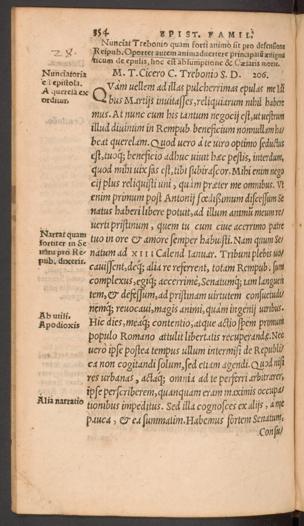 28.
354 EPIST. FAMIL.
Nunciat Trebonio quam forti animo sit pro defensione
Reipub. Oportet autem animaduertere principaliũ ænigma
ticum de epulis, hoc est absumptione & Cæsaris morte.
M. T. Cicero C. Trebonio S. D. 206.
Nunciatoria
epistola.
A querela ex
orditur.
Quàm uellem ad illas pulcherrimas epulas me Idi
bus Martijs inuitasses, reliquiarum nihil habere
mus. At nunc cum his tantum negocij est, ut uestrum
illud diuinum in Rempub. beneficium nonnullam ha/
beat querelam. Quod uero à te uiro optimo seductus
est, tuoq́; beneficio adhuc uiuit hæc pestis, interdum,
quod mihi uix fas est, tibi subirascor. Mihi enim nego
cij plus reliquisti uni, quàm præter me omnibus. Vt
enim primum post Antonij fœdißimum discessum Se
natus haberi libere potuit, ad illum animũ meum re/
uerti pristinum, quem tu cum ciue acerrimo patre
Narrat quam
fortiter in Se
natu pro Re-
pub. dixerit.
tuo in ore & amore semper habuisti. Nam quum Se/
natum ad XIII Calend. Ianuar. Tribuni plebis uo/
cauissent, deq́; alia re referrent, totam Rempub. sum
complexus, egiq́; acerrimè, Senatumq́; iam languen
tem, & defessum, ad pristinam uirtutem consuetudi/
nemq́; reuocaui, magis animi, quàm ingenij uiribus.
Ab utili.
Apodioxis
Hic dies, meaq́; contentio, atque actio spem primum
populo Romano attulit libertatis recuperandæ. Nec
uerò ipse postea tempus ullum intermisi de Republi/
ca non cogitandi solum, sed etiam agendi. Quod nisi
res urbanas, actaq́; omnia ad te perferri arbitrarer,
ipse perscriberem, quanquam eram maximis occupa/
Alia narratio
tionibus impeditus. Sed illa cognosces ex alijs, à me
pauca, & ea summatim. Habemus fortem Senatum,
Consu/